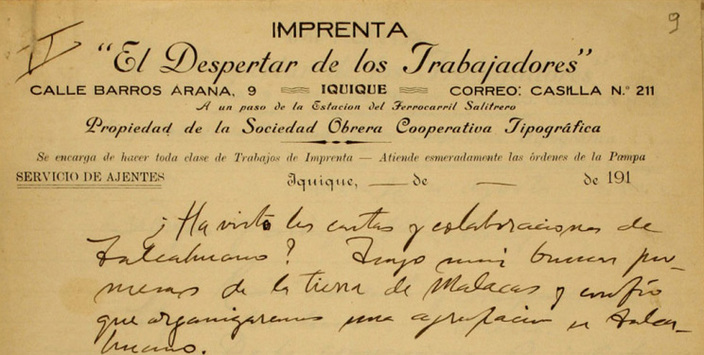 VI
9
IMPRENTA
"El Despertar de los Trabajadores"
CALLE BARROS ARANA, 9 IQUIQUE CORREO: CASILLA N.º 211
A un paso de la Estacion del Ferrocarril Salitrero
Propiedad de la Sociedad Obrera Cooperativa Tipográfica
Se encarga de hacer toda clase de Trabajos de Imprenta — Atiende esmeradamente las órdenes de la Pampa
SERVICIO DE AJENTES
Iquique, — de — de 191
¿Ha visto las cartas y colaboraciones de
Talcahuano? Tengo mui buenas pro-
mesas de la tierra de Malacas y confío
que organizaremos una agrupacion en Talca-
huano.